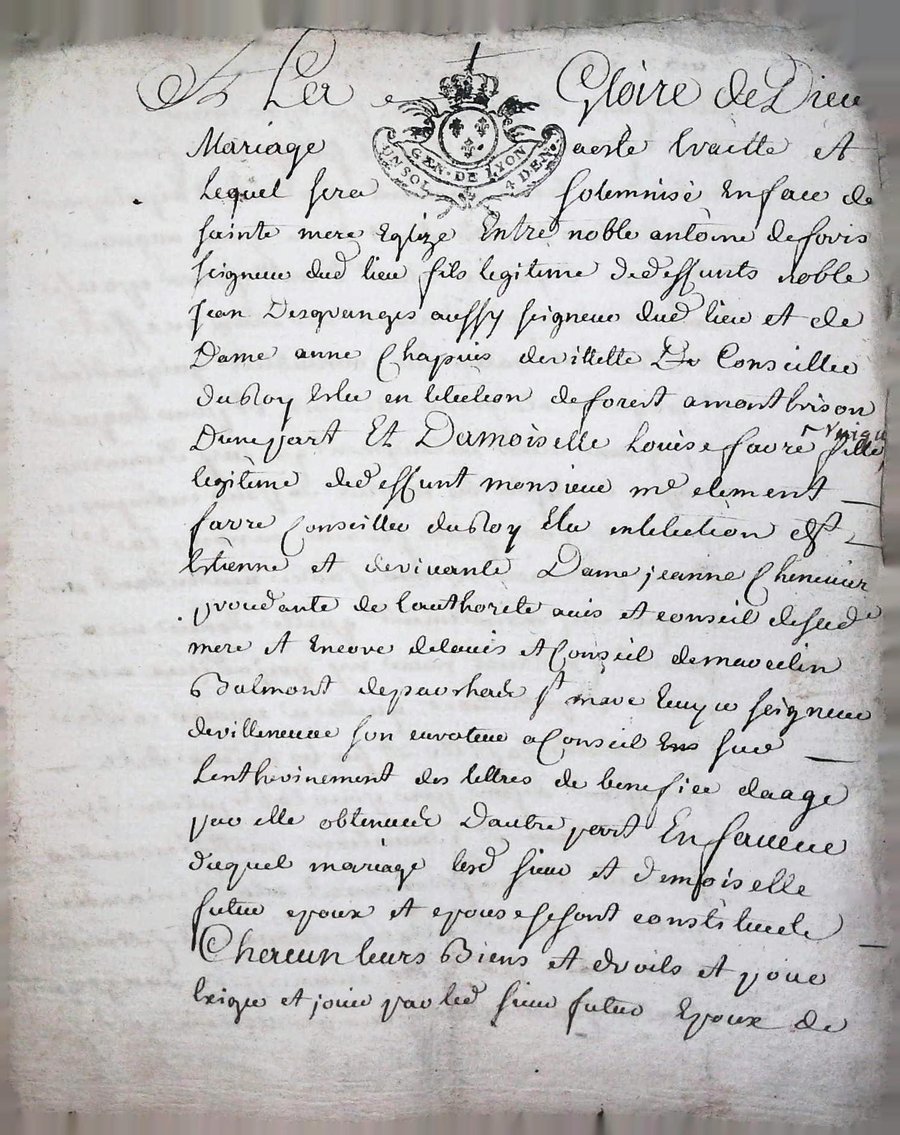 A La Gloire de Dieu
GEN. DE LYON
UN SOL 4 DEN.
Mariage a este traitté et
Lequel sera solemnisé En face de
sainte mere Eglize Entre noble antoine de foris
seigneur dud lieu fils legitime de deffunts noble
Jean Desgranges aussy seigneur dud lieu et de
Dame anne Chapuis devillette Conseiller
du Roy Eslu en lelection de forest a montbrison
Dune part Et Damoiselle Louise favre unique fille
legitime de deffunt monsieur me clement
favre Conseiller du Roy Elu en lelection de St
Estienne et de vivante Dame jeanne Chenevier
procedante de lauthorite avis et conseil de sad
mere et Encore de lavis et Conseil de marcelin
Balmont st mare seigneur
devilleneuve son curateur a Conseil
Lentherinement des lettres de benefice daage
par elle obtenues Dautre part En faveur
duquel mariage lesd sieur et demoiselle
futur epoux et epouse se sont constitués
Chacun leurs Biens et droits et pour
Exiger et jouir par led sieur futur Epoux de